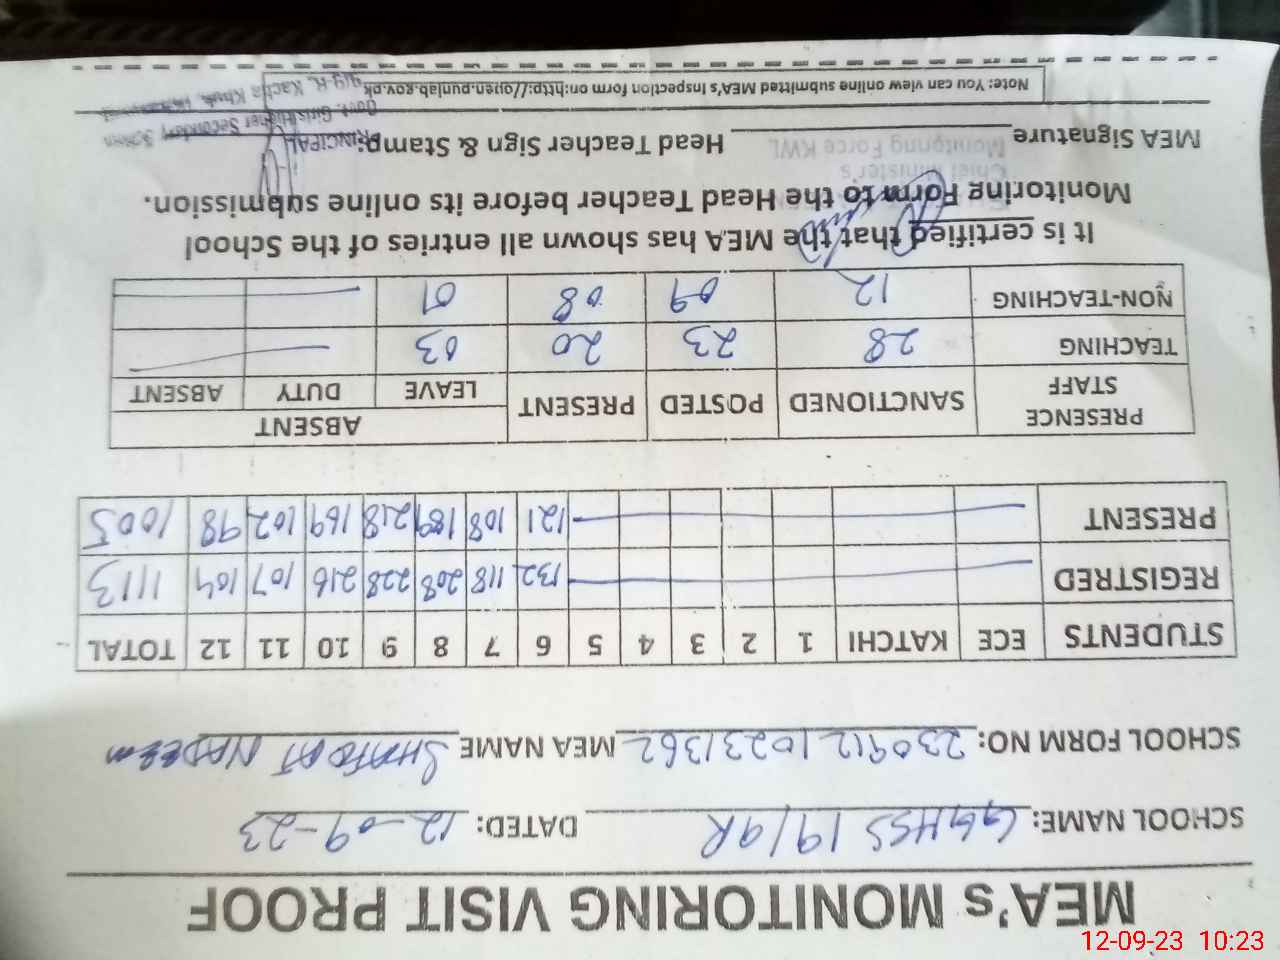 MEA's MONITORING VISIT PROOF
SCHOOL NAME: GGHSS 19/9R DATED: 12-09-23
SCHOOL FORM NO: 230912 10231362 MEA NAME SHAFQAT NADEEM
STUDENTS ECE KATCHI 1 2 3 4 5 6 7 8 9 10 11 12 TOTAL
REGISTRED 132 118 208 228 216 107 104 1113
PRESENT 121 108 189 218 169 102 98 1005
PRESENCE STAFF SANCTIONED POSTED PRESENT ABSENT
LEAVE DUTY ABSENT
TEACHING 28 23 20 03
NON-TEACHING 12 09 08 01
It is certified that the MEA has shown all entries of the School
Monitoring Form to the Head Teacher before its online submission.
Chief Minister's
Monitoring Force KWL
MEA Signature Head Teacher Sign & Stamp:
PRINCIPAL
Govt. Girls Higher Secondary School
19/9-R, Kacha Khuh,
Note: You can view online submitted MEA's inspection form on:http://open.punjab.gov.pk
12-09-23 10:23